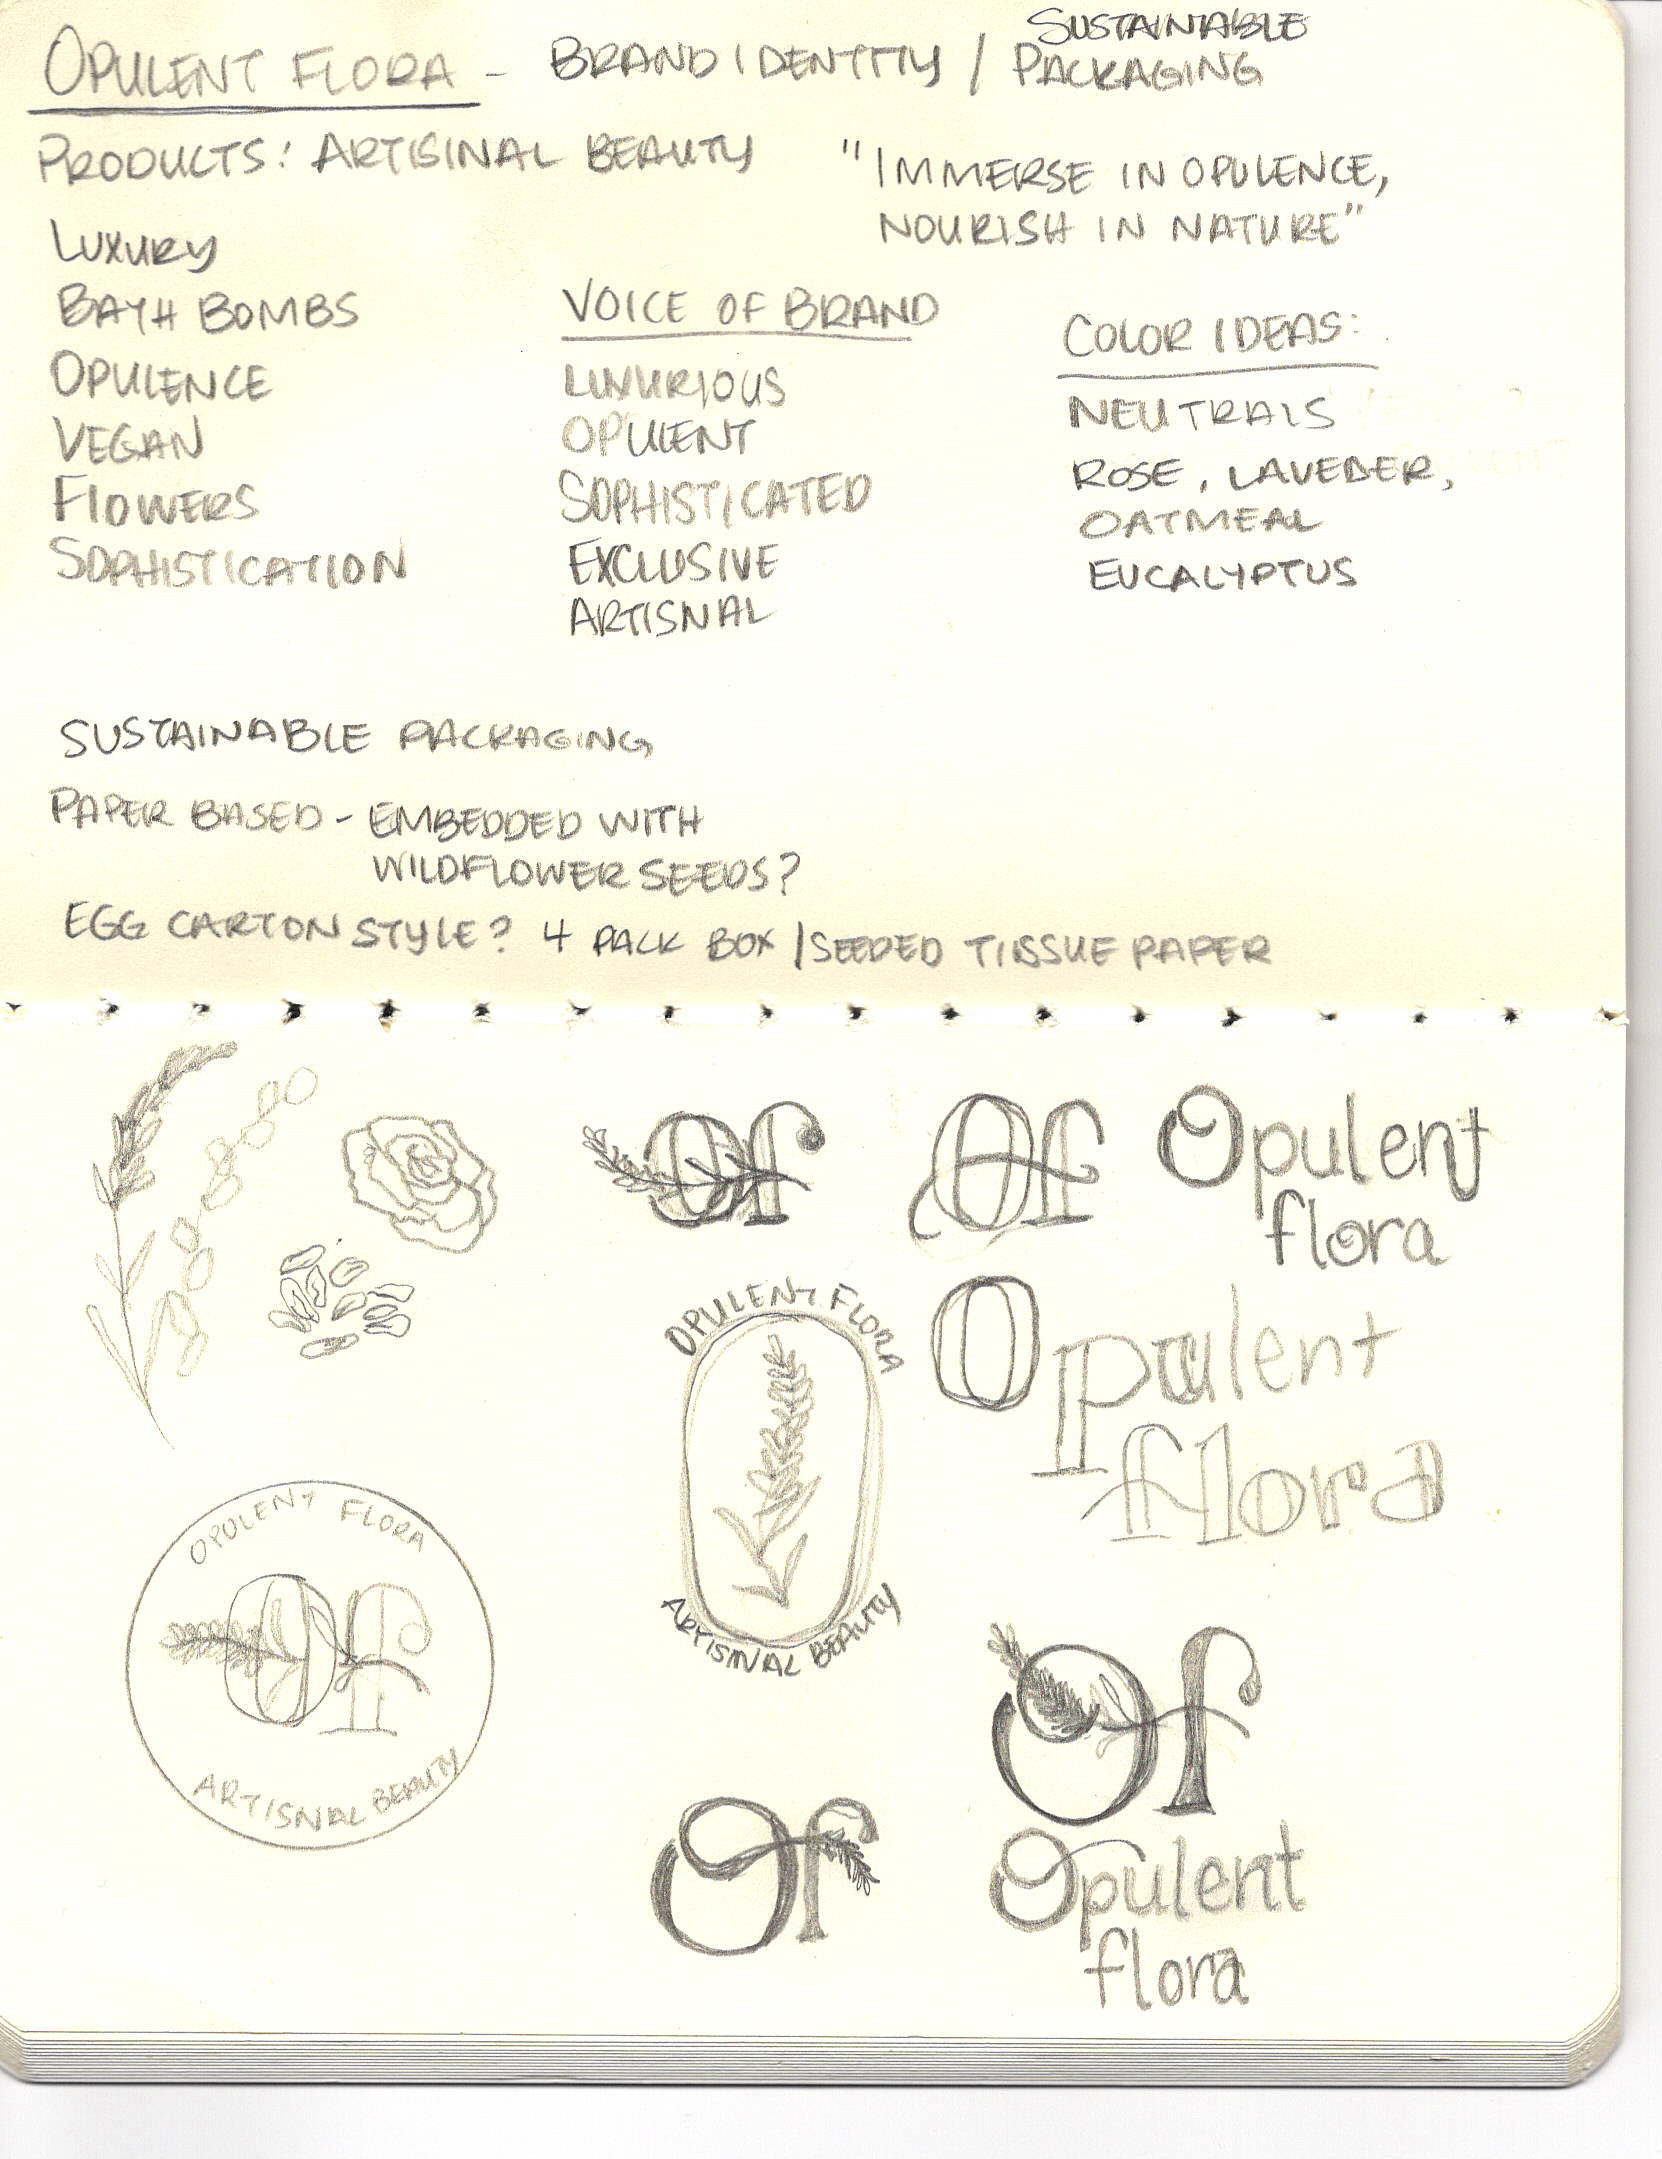 OPULENT FLORA - BRAND IDENTITIY / SUSTAINABLE PACKAGING
PRODUCTS: ARTISINAL BEAUTY
"IMMERSE IN OPULENCE,
NOURISH IN NATURE"
LUXURY
BATH BOMBS
OPULENCE
VEGAN
FLOWERS
SOPHISTICATION
VOICE OF BRAND
LUXURIOUS
OPULENT
SOPHISTICATED
EXCLUSIVE
ARTISNAL
COLOR IDEAS:
NEUTRALS
ROSE, LAVEDER,
OATMEAL
EUCALYPTUS
SUSTAINABLE PACKAGING
PAPER BASED - EMBEDDED WITH
WILDFLOWER SEEDS?
EGG CARTON STYLE? 4 PACK BOX / SEEDED TISSUE PAPER
Of
Of
Opulent
flora
OPULENT FLORA
ARTISINAL BEAUTY
Opulent
flora
OPULENT FLORA
Of
ARTISNAL BEAUTY
Of
Of
Opulent
flora